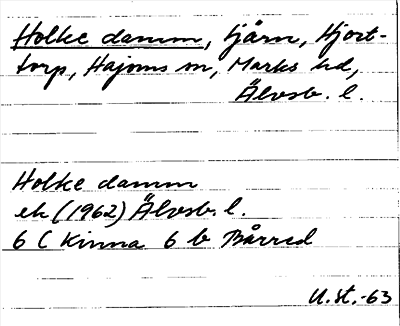 Holke damm, tjärn, Hjort-
torp, Hajoms sn, Marks hd,
Älvsb. l.
Holke damm
ek (1962) Älvsb. l.
6 C Kinna 6 b Bårred
U.st.-63